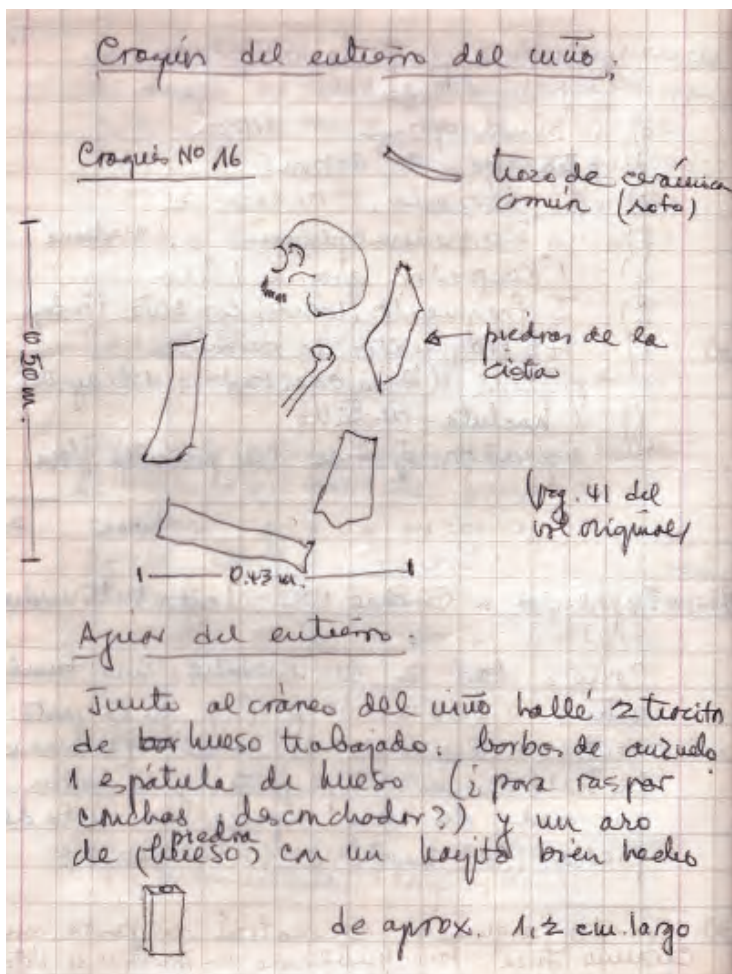 Croquis del entierro del niño:
Croquis Nº 16
trozo de cerámica
común (roto)
0.50 m.
piedras de la
cista
pág. 41 del
vol original
0.43 m.
Ajuar del entierro.
Junto al cráneo del niño hallé 2 trocitos
de hueso trabajado: barbas de anzuelo
1 espátula de hueso (¿para raspar
conchas, desconchador?) y un aro
de (hueso) piedra con un hoyito bien hecho
de aprox. 1,2 cm. largo